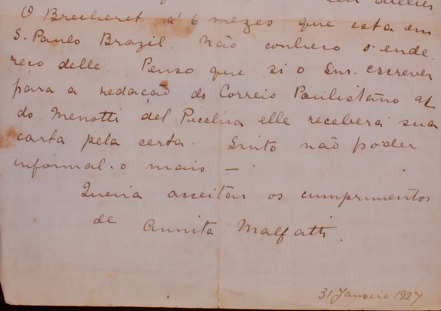 O Brecheret a 6 mezes que esta em
S. Paulo Brazil. Não conheco o ende
reço delle. Penso que si o Snr. escrever
para a redação do Correio Paulistano
do Menotti del Picchia elle receberá sua
carta pela certa. Sinto não poder
informal-o mais —
Queira acceitar os cumprimentos
de Annita Malfatti.
31 Janeiro 1927